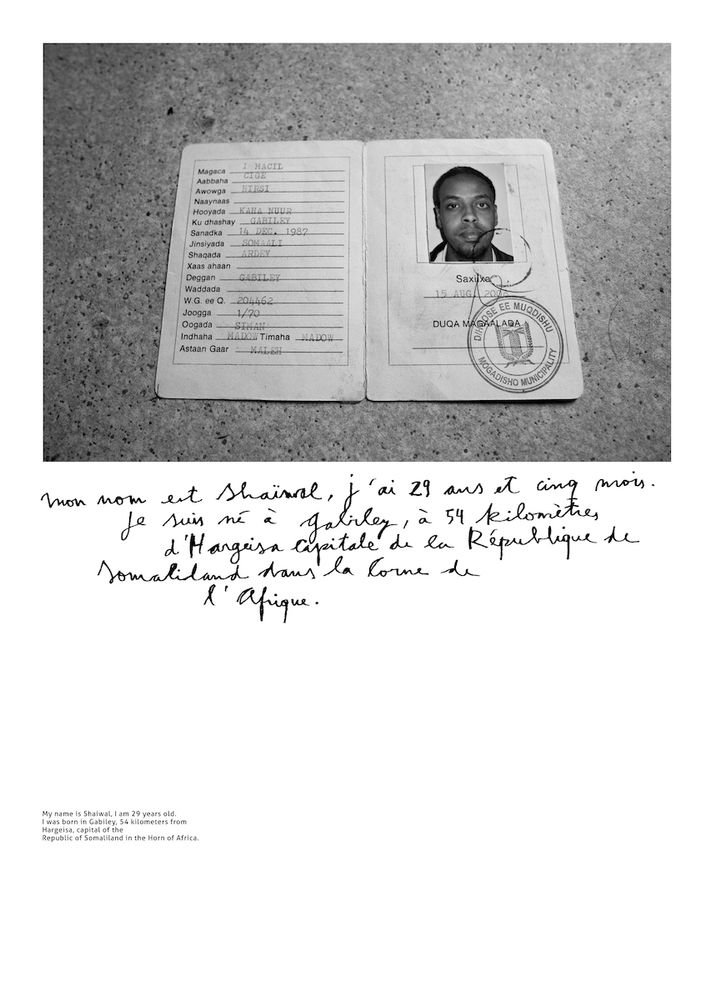 Magaca I MACIL
Aabbaha CIGE
Awowga HIRSI
Naaynaas
Hooyada KAHA NUUR
Ku dhashay GABILEY
Sanadka 14 DEC. 1987
Jinsiyada SOMAALI
Shaqada ARDEY
Xaas ahaan
Deggan GABILEY
Waddada
W.G. ee Q. 204462
Joogga 1/70
Oogada SIMAN
Indhaha MADOW Timaha MADOW
Astaan Gaar MALEH
Saxiixa
15 AUG.
DUQA MAGAALADA
MUQDISHU
MOGADISHO MUNICIPALITY
mon nom est Shaïwal, j'ai 29 ans et cinq mois.
Je suis né à Gabiley, à 54 kilomètres
d'Hargeisa capitale de la République de
Somaliland dans la Corne de
l'Afrique.
My name is Shaiwal, I am 29 years old.
I was born in Gabiley, 54 kilometers from
Hargeisa, capital of the
Republic of Somaliland in the Horn of Africa.